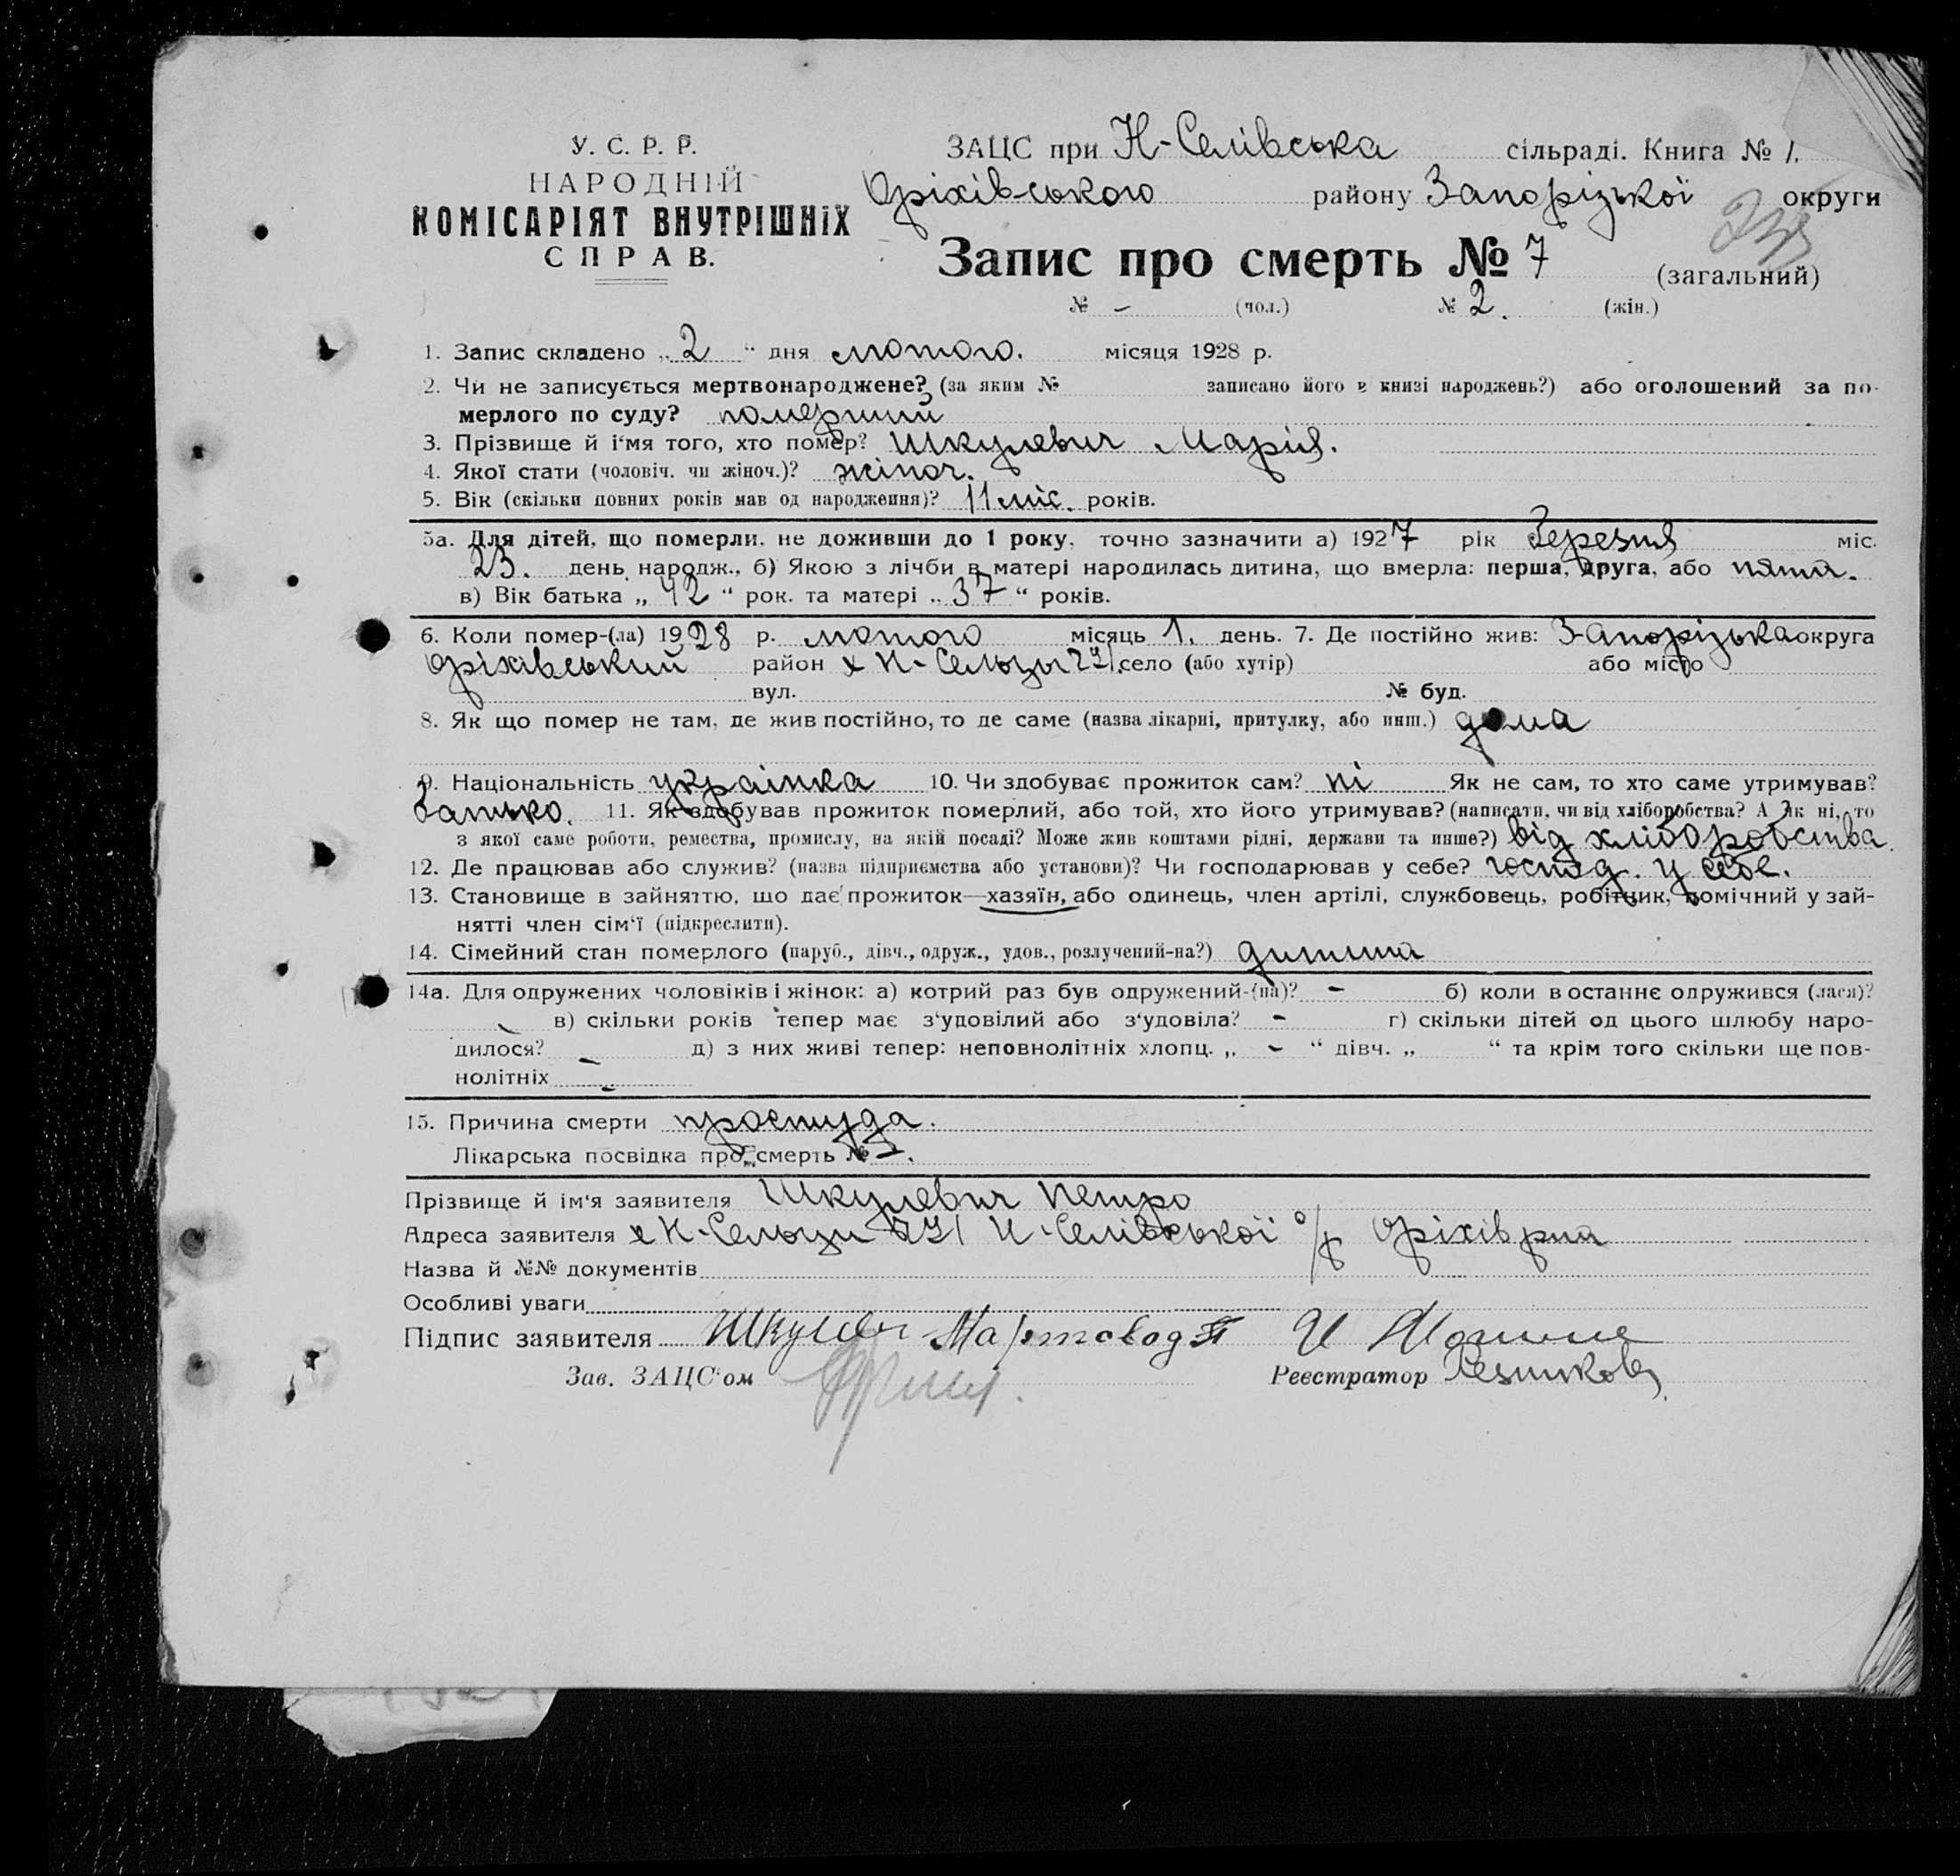 У. С. Р. Р.
НАРОДНІЙ
КОМІСАРІЯТ ВНУТРІШНІХ
СПРАВ.
ЗАЦС при Н-Селівська сільраді. Книга № 1.
Оріхівського району Запорізької округи
Запис про смерть № 7 (загальний)
№ - (чол.) № 2. (жін.)
1. Запис складено „ 2 “ дня лютого. місяця 1928 р.
2. Чи не записується мертвонароджене? (за яким № записано його в книзі народжень?) або оголошений за по-
мерлого по суду? померший
3. Прізвище й і‘мя того, хто помер? Шкулевич Марія.
4. Якої стати (чоловіч. чи жіноч.)? жіноч.
5. Вік (скільки повних років мав од народження)? 11 міс. років.
5а. Для дітей, що померли, не доживши до 1 року, точно зазначити а) 1927 рік Березня міс.
23. день народж., б) Якою з лічби в матері народилась дитина, що вмерла: перша, друга, або пята.
в) Вік батька „ 42 “ рок. та матері „ 37 “ років.
6. Коли помер-(ла) 1928 р. лютого місяць 1. день. 7. Де постійно жив: Запорізька округа
Оріхівський район х Н-Сельцы село (або хутір) або місто
вул. № буд.
8. Як що помер не там, де жив постійно, то де саме (назва лікарні, притулку, або инш.) дома
9. Національність українка 10. Чи здобуває прожиток сам? ні Як не сам, то хто саме утримував?
Батько. 11. Як здобував прожиток померлий, або той, хто його утримував? (написати, чи від хліборобства? А як ні, то
з якої саме роботи, ремества, промислу, на якій посаді? Може жив коштами рідні, держави та инше?) від хліборобства.
12. Де працював або служив? (назва підприємства або установи)? Чи господарював у себе? господ. у себе.
13. Становище в зайняттю, що дає прожиток—хазяїн, або одинець, член артілі, службовець, робітник, помічний у зай-
нятті член сім‘ї (підкреслити).
14. Сімейний стан померлого (паруб., дівч., одруж., удов., розлучений-на?) дитина
14а. Для одружених чоловіків і жінок: а) котрий раз був одружений-(на)? - б) коли в останнє одружився (лася)?
- в) скільки років тепер має з‘удовілий або з‘удовіла? - г) скільки дітей од цього шлюбу наро-
дилося? - д) з них живі тепер: неповнолітніх хлопц. „ - “ дівч. „ “ та крім того скільки ще пов-
нолітніх -
15. Причина смерти простуда.
Лікарська посвідка про смерть №
Прізвище й ім‘я заявителя Шкулевич Петро
Адреса заявителя х Н-Сельци Н-Селівської с/р Оріхів рна
Назва й №№ документів
Особливі уваги
Підпис заявителя
Зав. ЗАЦС‘ом
Реєстратор